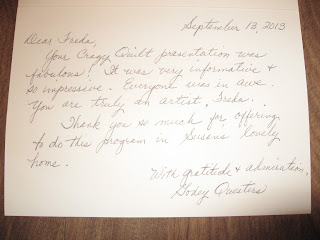 September 13, 2013
Dear Freda,
Your Crazy Quilt presentation was
fabulous! It was very informative &
so impressive. Everyone was in awe.
You are truly an artist, Freda.
Thank you so much for offering
to do this program in Susan's lovely
home.
With gratitude & admiration,
Godey Questers